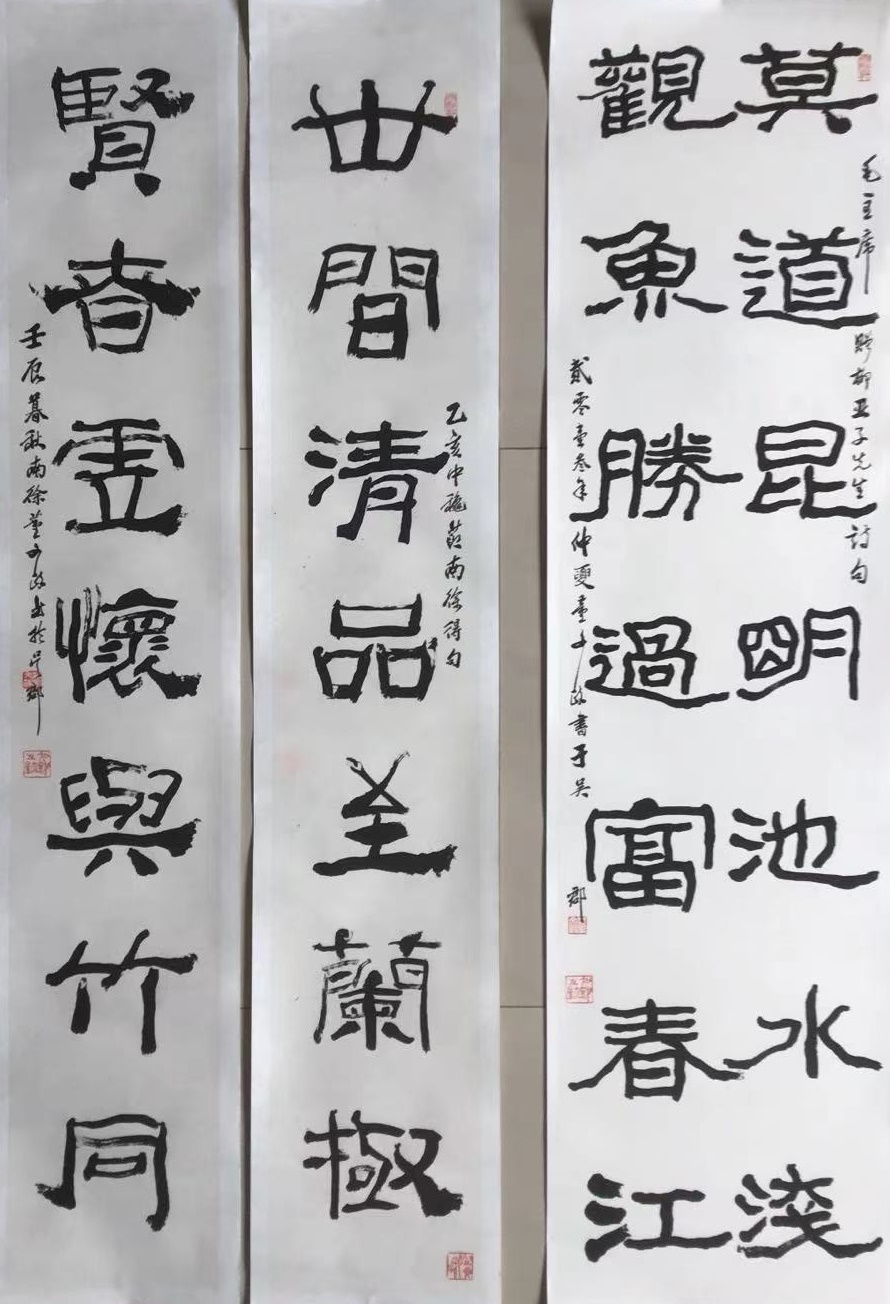 毛主席贈柳亞子先生詩句
莫道昆明池水淺
觀魚勝過富春江
貳零壹叁年仲夏董文政書于吳郡
乙亥中穐莭南徐得句
世間清品至蘭極
賢者虛懷與竹同
壬辰暮秋南徐董文政書於吳郡